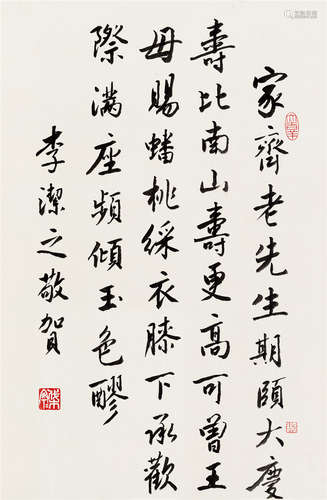 家齊老先生期頤大慶
壽比南山壽更高可曾王
母賜蟠桃綵衣膝下承歡
際滿座頻傾玉色醪
李潔之敬賀